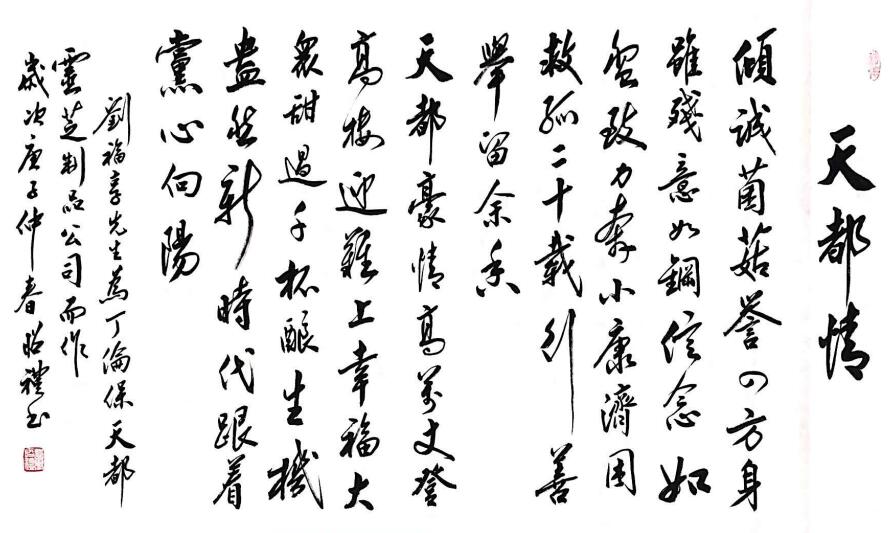 天都情
傾誠菌菇譽四方身
雖殘意如鋼信念如
磐致力奔小康濟困
救孤二十載行善
舉留余香
天都豪情高萬丈登
高樓迎難上幸福大
衆甜過千杯釀生機
盎然新時代跟着
黨心向陽
劉福享先生為丁倫保天都
靈芝制品公司而作
歲次庚子仲春昭禮书